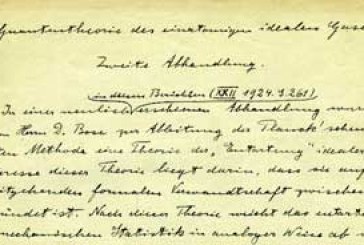 Quantentheorie des einatomigen idealen Gases
Zweite Abhandlung.
in diesen Berichten (XXII 1924. S. 261)
In einer neulich erschienen Abhandlung wurde
Herrn D. Bose zur Ableitung der Planck'schen
ten Methode eine Theorie der "Entartung" idealer
teresse dieser Theorie liegt darin, dass sie auf
eitgehenden formalen Verwandtschaft zwischen
ündet ist. Nach dieser Theorie weicht das entartete
mechanischen Statistik in analoger Weise ab